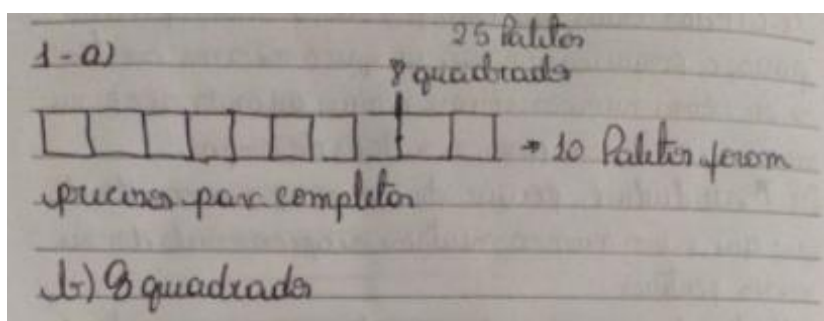 25 Palitos
1-a)
8 quadrados
→ 10 Palitos foram
precisos par completar
b) 8 quadrados